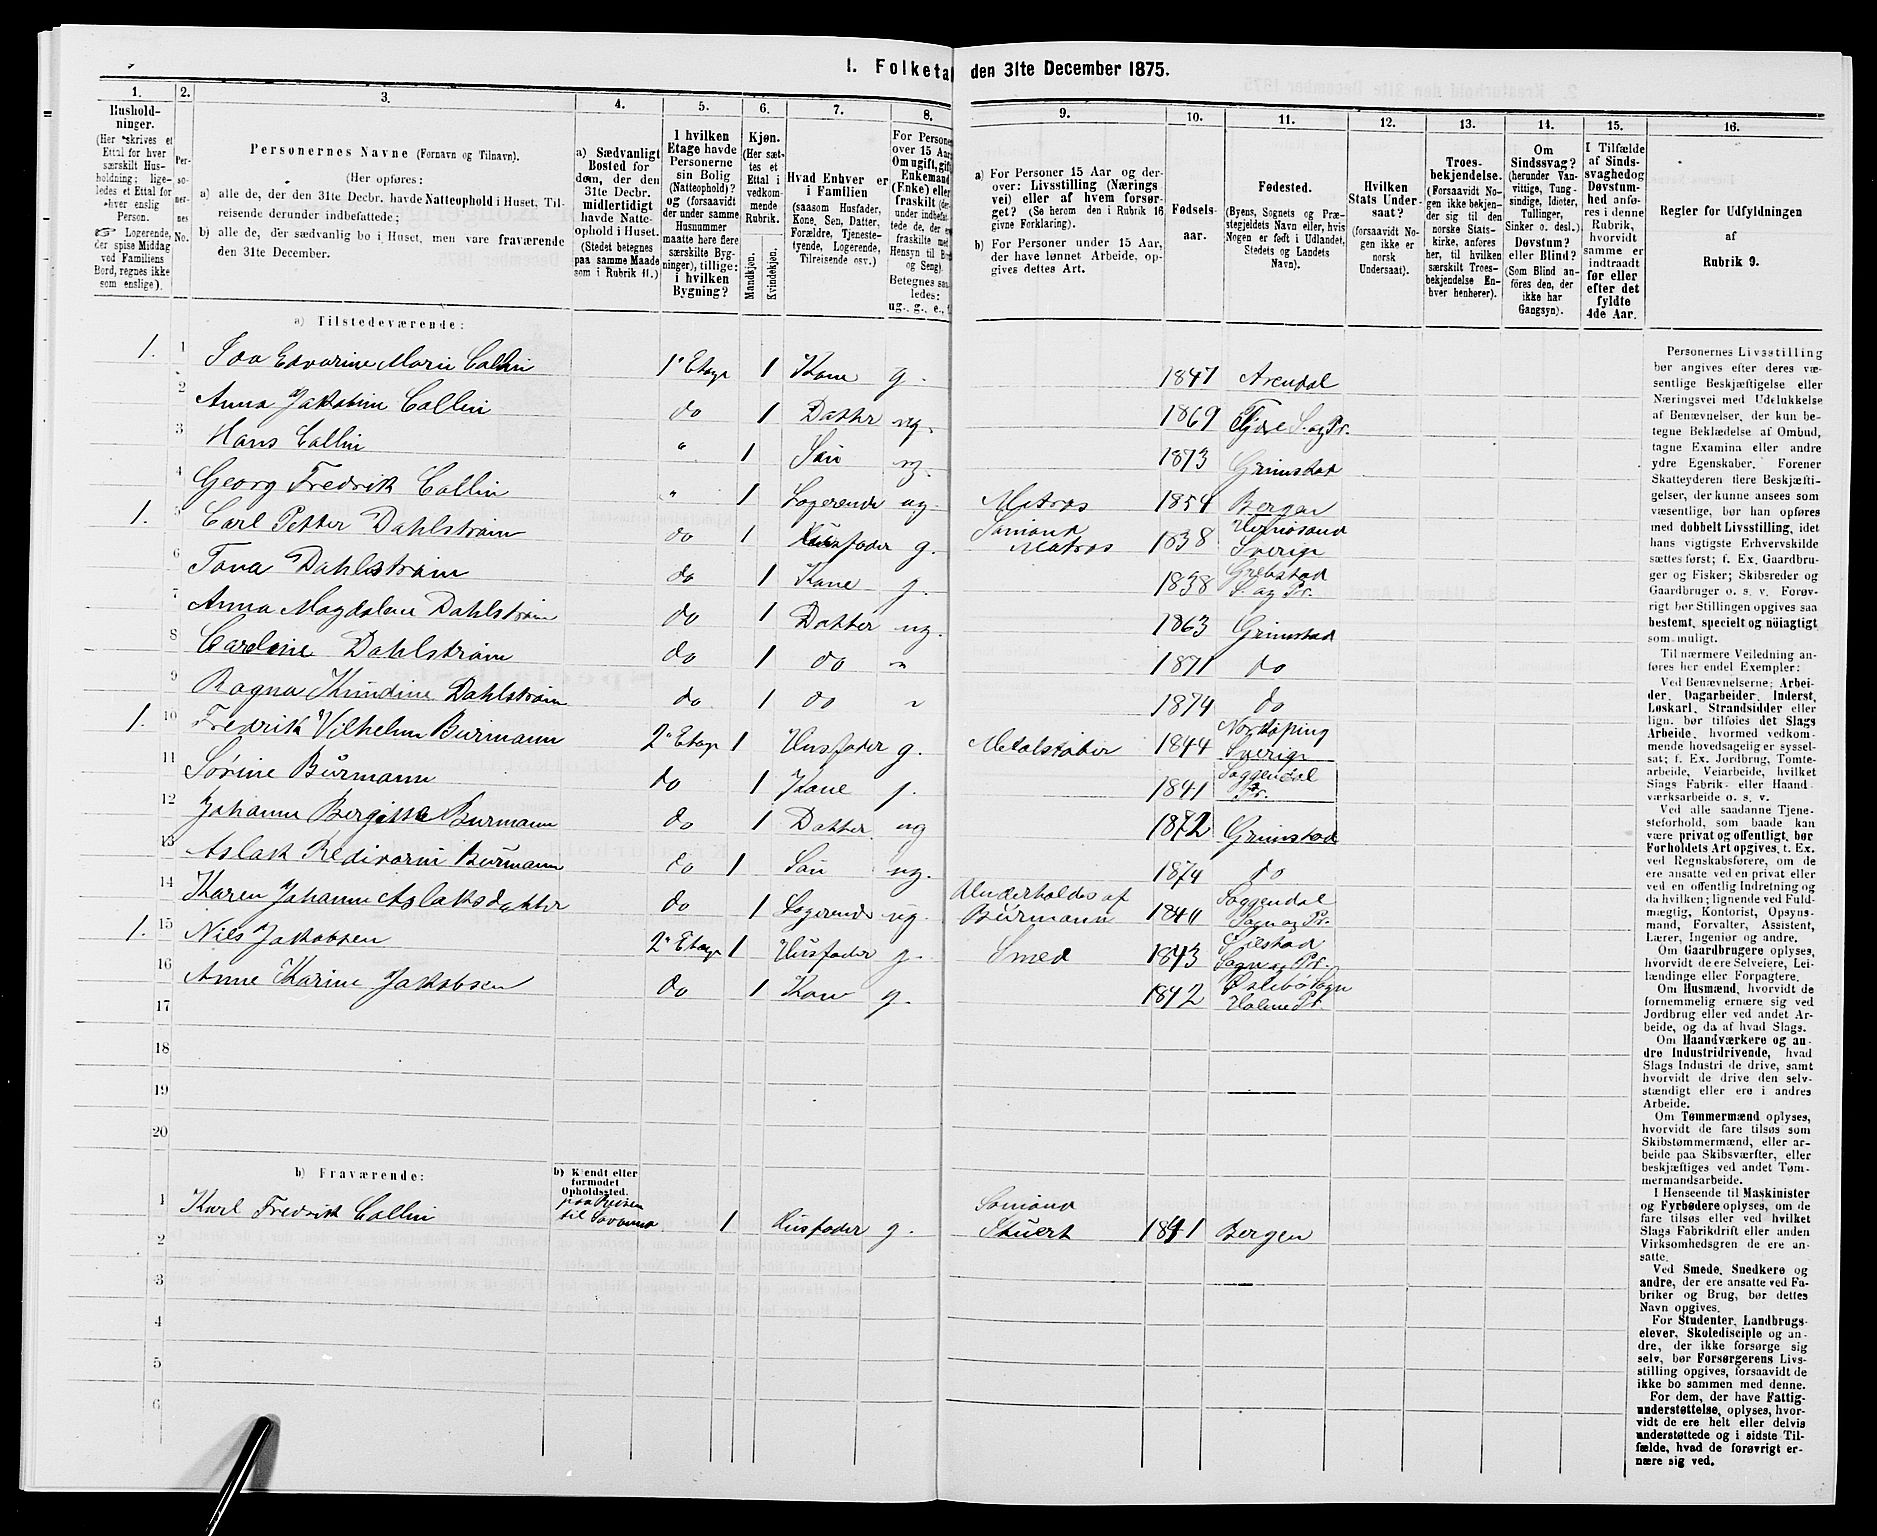 I. Folketa den 31te December 1875.
1. 2. 3. 4. 5. 6. 7. 8. 9. 10. 11. 12. 13. 14. 15. 16.
Hushold-
ninger.
(Her skrives et
Ettal for hver
særskilt Hus-
holdning; lige-
ledes et Ettal for
hver enslig
Person.
☞ Logerende,
der spise Middag
ved Familiens
Bord, regnes ikke
som enslige).
Per-
so-
ner-
nes
No.
Personernes Navne (Fornavn og Tilnavn).
(Her opføres:
a) alle de, der den 31te Decbr. havde Natteophold i Huset, Til-
reisende derunder indbefattede;
b) alle de, der sædvanlig bo i Huset, men vare fraværende
den 31te December.
a) Sædvanligt
Bosted for
dem, der den
31te Decbr.
midlertidigt
havde Natte-
ophold i Huset.
(Stedet betegnes
paa samme Maade
som i Rubrik 11.)
I hvilken
Etage havde
Personerne
sin Bolig
(Natteophold)?
og (forsaavidt
der under samme
Husnummer
maatte høre flere
særskilte Byg-
ninger), tillige:
i hvilken
Bygning?
Kjøn.
(Her sæt-
tes et
Ettal i
vedkom-
mende
Rubrik.
Mandkjøn.
Kvindekjøn.
Hvad Enhver er
i Familien
(saasom Husfader,
Kone, Søn, Datter,
Forældre, Tjeneste-
tyende, Logerende,
Tilreisende osv.)
For Persone
over 15 Aar
Om ugift, gift
Enkemand
(Enke) eller
fraskilt (der-
under indbefat-
tede de, der er
fraskilte med
Hensyn til Bo
og Seng).
Betegnes saa-
ledes:
ug., g., e., f.
a) For Personer 15 Aar og der-
over: Livsstilling (Nærings
vei) eller af hvem forsør-
get? (Se herom den i Rubrik 16
givne Forklaring).
b) For Personer under 15 Aar,
der have lønnet Arbeide, op-
gives dettes Art.
Fødsels-
aar.
Fødested.
(Byens, Sognets og Præ-
stegjeldets Navn eller, hvis
Nogen er født i Udlandet,
Stedets og Landets
Navn).
Hvilken
Stats Under-
saat?
(forsaavidt No-
gen ikke er
norsk
Undersaat).
Troes-
bekjendelse.
(Forsaavidt No-
gen ikke bekjen-
der sig til den
norske Stats-
kirke, anføres
her, til hvilken
særskilt Troes-
bekjendelse En-
hver henhører).
Om
Sindssvag?
(herunder Van-
vittige, Tung-
sindige, Idioter,
Tullinger,
Sinker o. desl.)
Døvstum?
eller Blind?
(Som Blind an-
føres den, der
ikke har
Gangsyn).
I Tilfælde
af Sinds-
svaghed og
Døvstum-
hed anfø-
res i denne
Rubrik,
hvorvidt
samme er
indtraadt
før eller
efter det
fyldte
4de Aar.
Regler for Udfyldningen
af
Rubrik 9.
a) Tilstedeværende:
1. 1 Edvarine Marie Collin 1ste Etage 1 Kone g. 1847 Arendal
2 Anna Jakobine Collin do 1 Datter ug. 1869 S. og Pr.
3 Hans Collin " 1 Søn ug. 1873 Grimstad
4 Georg Fredrik Collin " 1 Logerende ug. Matros 1854 Bergen
1. 5 Carl Petter Dahlstrøm do 1 Husfader g. Sømand Matros 1838 Hernøsand Sverige
6 Tona Dahlstrøm do 1 Kone g. 1838 S. og Pr.
7 Anna Magdalene Dahlstrøm do 1 Datter ug. 1863 Grimstad
8 Caroline Dahlstrøm do 1 do " 1871 do
9 Ragna Kundine Dahlstrøm do 1 do " 1874 do
1. 10 Fredrik Vilhelm Burmann 2den Etage 1 Husfader g. 1844 Norkøping Sverige
11 Sørine Burmann do 1 Kone g. 1841 Soggendal Pr.
12 Johanne Bergitte Burmann do 1 Datter ug 1872 Grimstad
13 Aslak Burmann do 1 Søn ug. 1874 do
14 Karen Johanne Aslaksdatter do 1 Logerende ug. Underholdes af Burmann Soggendal Sogn og Pr.
1. 15 Nils Jakobsen 2den Etage 1 Husfader g. Smed 1843 Sogn og Pr.
16 Anne Karine Jakobsen do 1 Kone g. 1842 Øslebø Sogn Holme Pr.
17
18
19
20
b) Fraværende:
b) Kjendt eller
formodet
Opholdssted.
1 Karl Fredrik Collin paa Reisen til Savanna 1 Husfader g. Sømand Stuert 1841 Bergen
2
3
4
5
6
Personernes Livsstilling
bør angives efter deres væ-
sentlige Beskjæftigelse eller
Næringsvei med Udelukkelse
af Benævnelser, der kun be-
tegne Beklædelse af Ombud,
tagne Examina eller andre
ydre Egenskaber. Forener
Skatteyderen flere Beskjæfti-
gelser, der kunne ansees som
væsentlige, bør han opføres
med dobbelt Livsstilling, idet
hans vigtigste Erhvervskilde
sættes først; f. Ex. Gaardbru-
ger og Fisker; Skibsreder og
Gaardbruger o. s. v. Forøv-
rigt bør Stillingen opgives saa
bestemt, specielt og nöiagtigt
som muligt.
Til nærmere Veiledning an-
føres her endel Exempler:
Ved Benævnelserne: Arbei-
der, Dagarbeider, Inderst,
Løskarl, Strandsidder eller
lign. bør tilføies det Slags
Arbeide, hvormed vedkom-
mende hovedsagelig er syssel-
sat; f. Ex. Jordbrug, Tomte-
arbeide, Veiarbeide, hvilket
Slags Fabrik- eller Haand-
værksarbeide o. s. v.
Ved alle saadanne Tjene-
steforhold, som baade kan
være privat og offentligt, bør
Forholdets Art opgives, t. Ex.
ved Regnskabsførere, om de
ere ansatte ved en privat eller
ved en offentlig Indretning og
da hvilken; lignende ved Fuld-
mægtig, Kontorist, Opsyns-
mand, Forvalter, Assistent,
Lærer, Ingeniør og andre.
Om Gaardbrugere oplyses,
hvorvidt de ere Selveiere, Lei-
lændinge eller Forpagtere.
Om Husmænd, hvorvidt de
fornemmelig ernære sig ved
Jordbrug eller ved andet Ar-
beide, og da af hvad Slags.
Om Haandværkere og an-
dre Industridrivende, hvad
Slags Industri de drive, samt
hvorvidt de drive den selv-
stændigt eller ere i andres
Arbeide.
Om Tømmermænd oplyses,
hvorvidt de fare tilsøs som
Skibstømmermænd, eller ar-
beide paa Skibsværfter, eller
beskjæftiges ved andet Tøm-
mermandsarbeide.
I Henseende til Maskinister
og Fyrbødere oplyses, om de
fare tilsøs eller ved hvilket
Slags Fabrikdrift eller anden
Virksomhedsgren de ere an-
satte.
Ved Smede, Snedkere og
andre, der ere ansatte ved Fa-
briker og Brug, bør dettes
Navn opgives.
For Studenter, Landbrugs-
elever, Skoledisciple og an-
dre, der ikke forsørge sig
selv, bør Forsørgerens Livs-
stilling opgives, forsaavidt de
ikke bo sammen med denne.
For dem, der have Fattig-
understøttelse, oplyses, hvor-
vidt de ere helt eller delvis
understøttede og i sidste Til-
fælde, hvad de forøvrigt er-
nære sig ved.